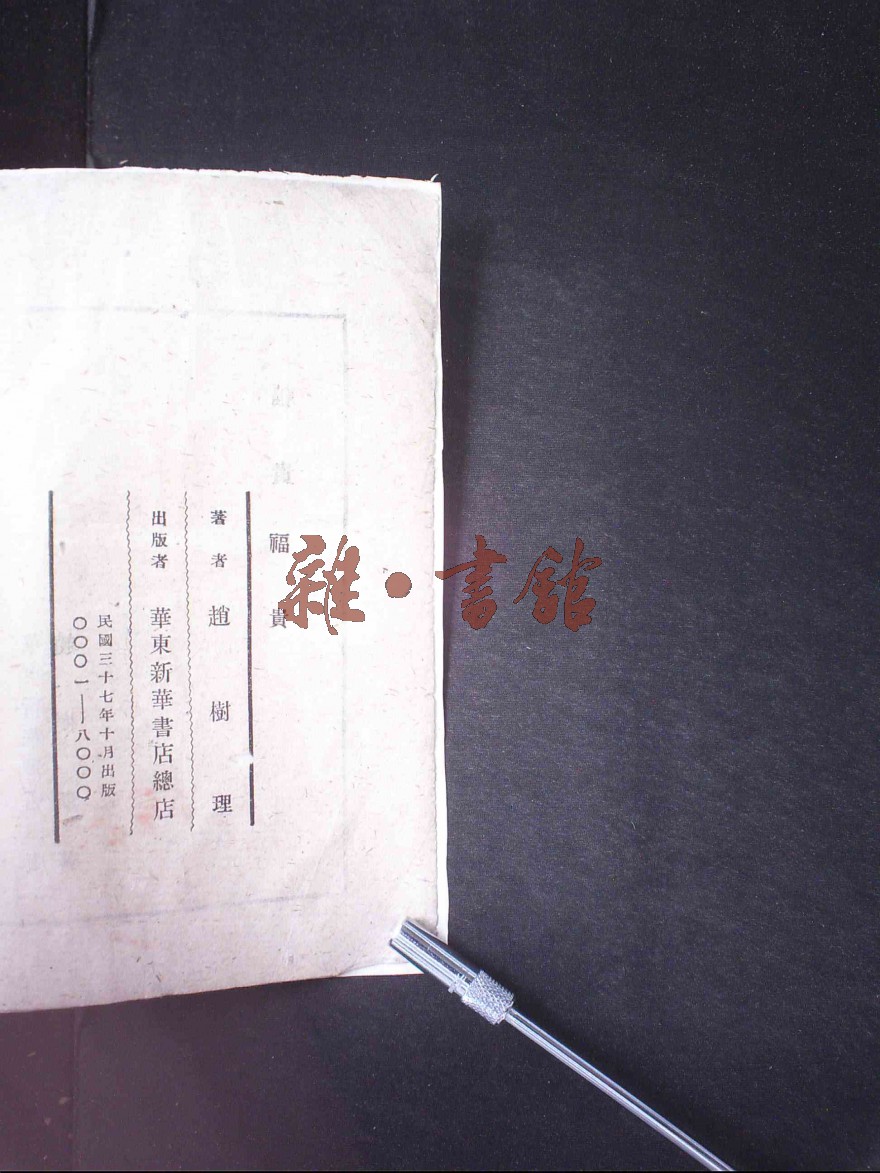 福貴
著者 趙樹理
出版者 華東新華書店總店
民國三十七年十月出版
〇〇〇一——八〇〇〇
雜·書館